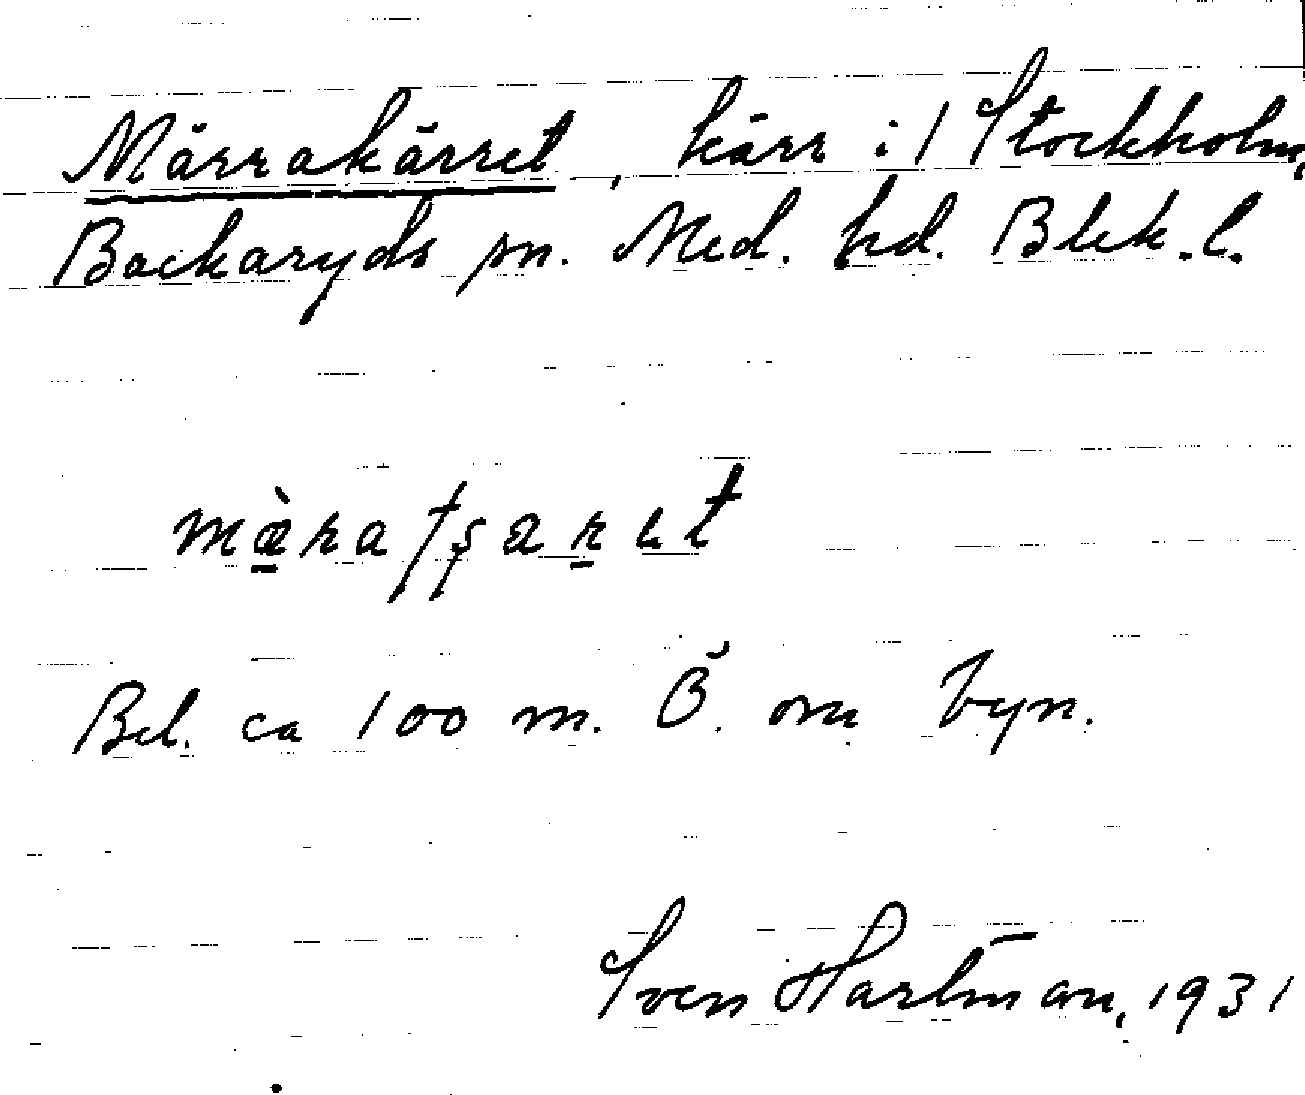 Märrakärret, kärr i 1 Stockholm,
Backaryds sn. Med. hd. Blek. l.
mæ̀raʃʂarɩt
Bel. ca 100 m. Ö. om byn.
Sven Hartman, 1931